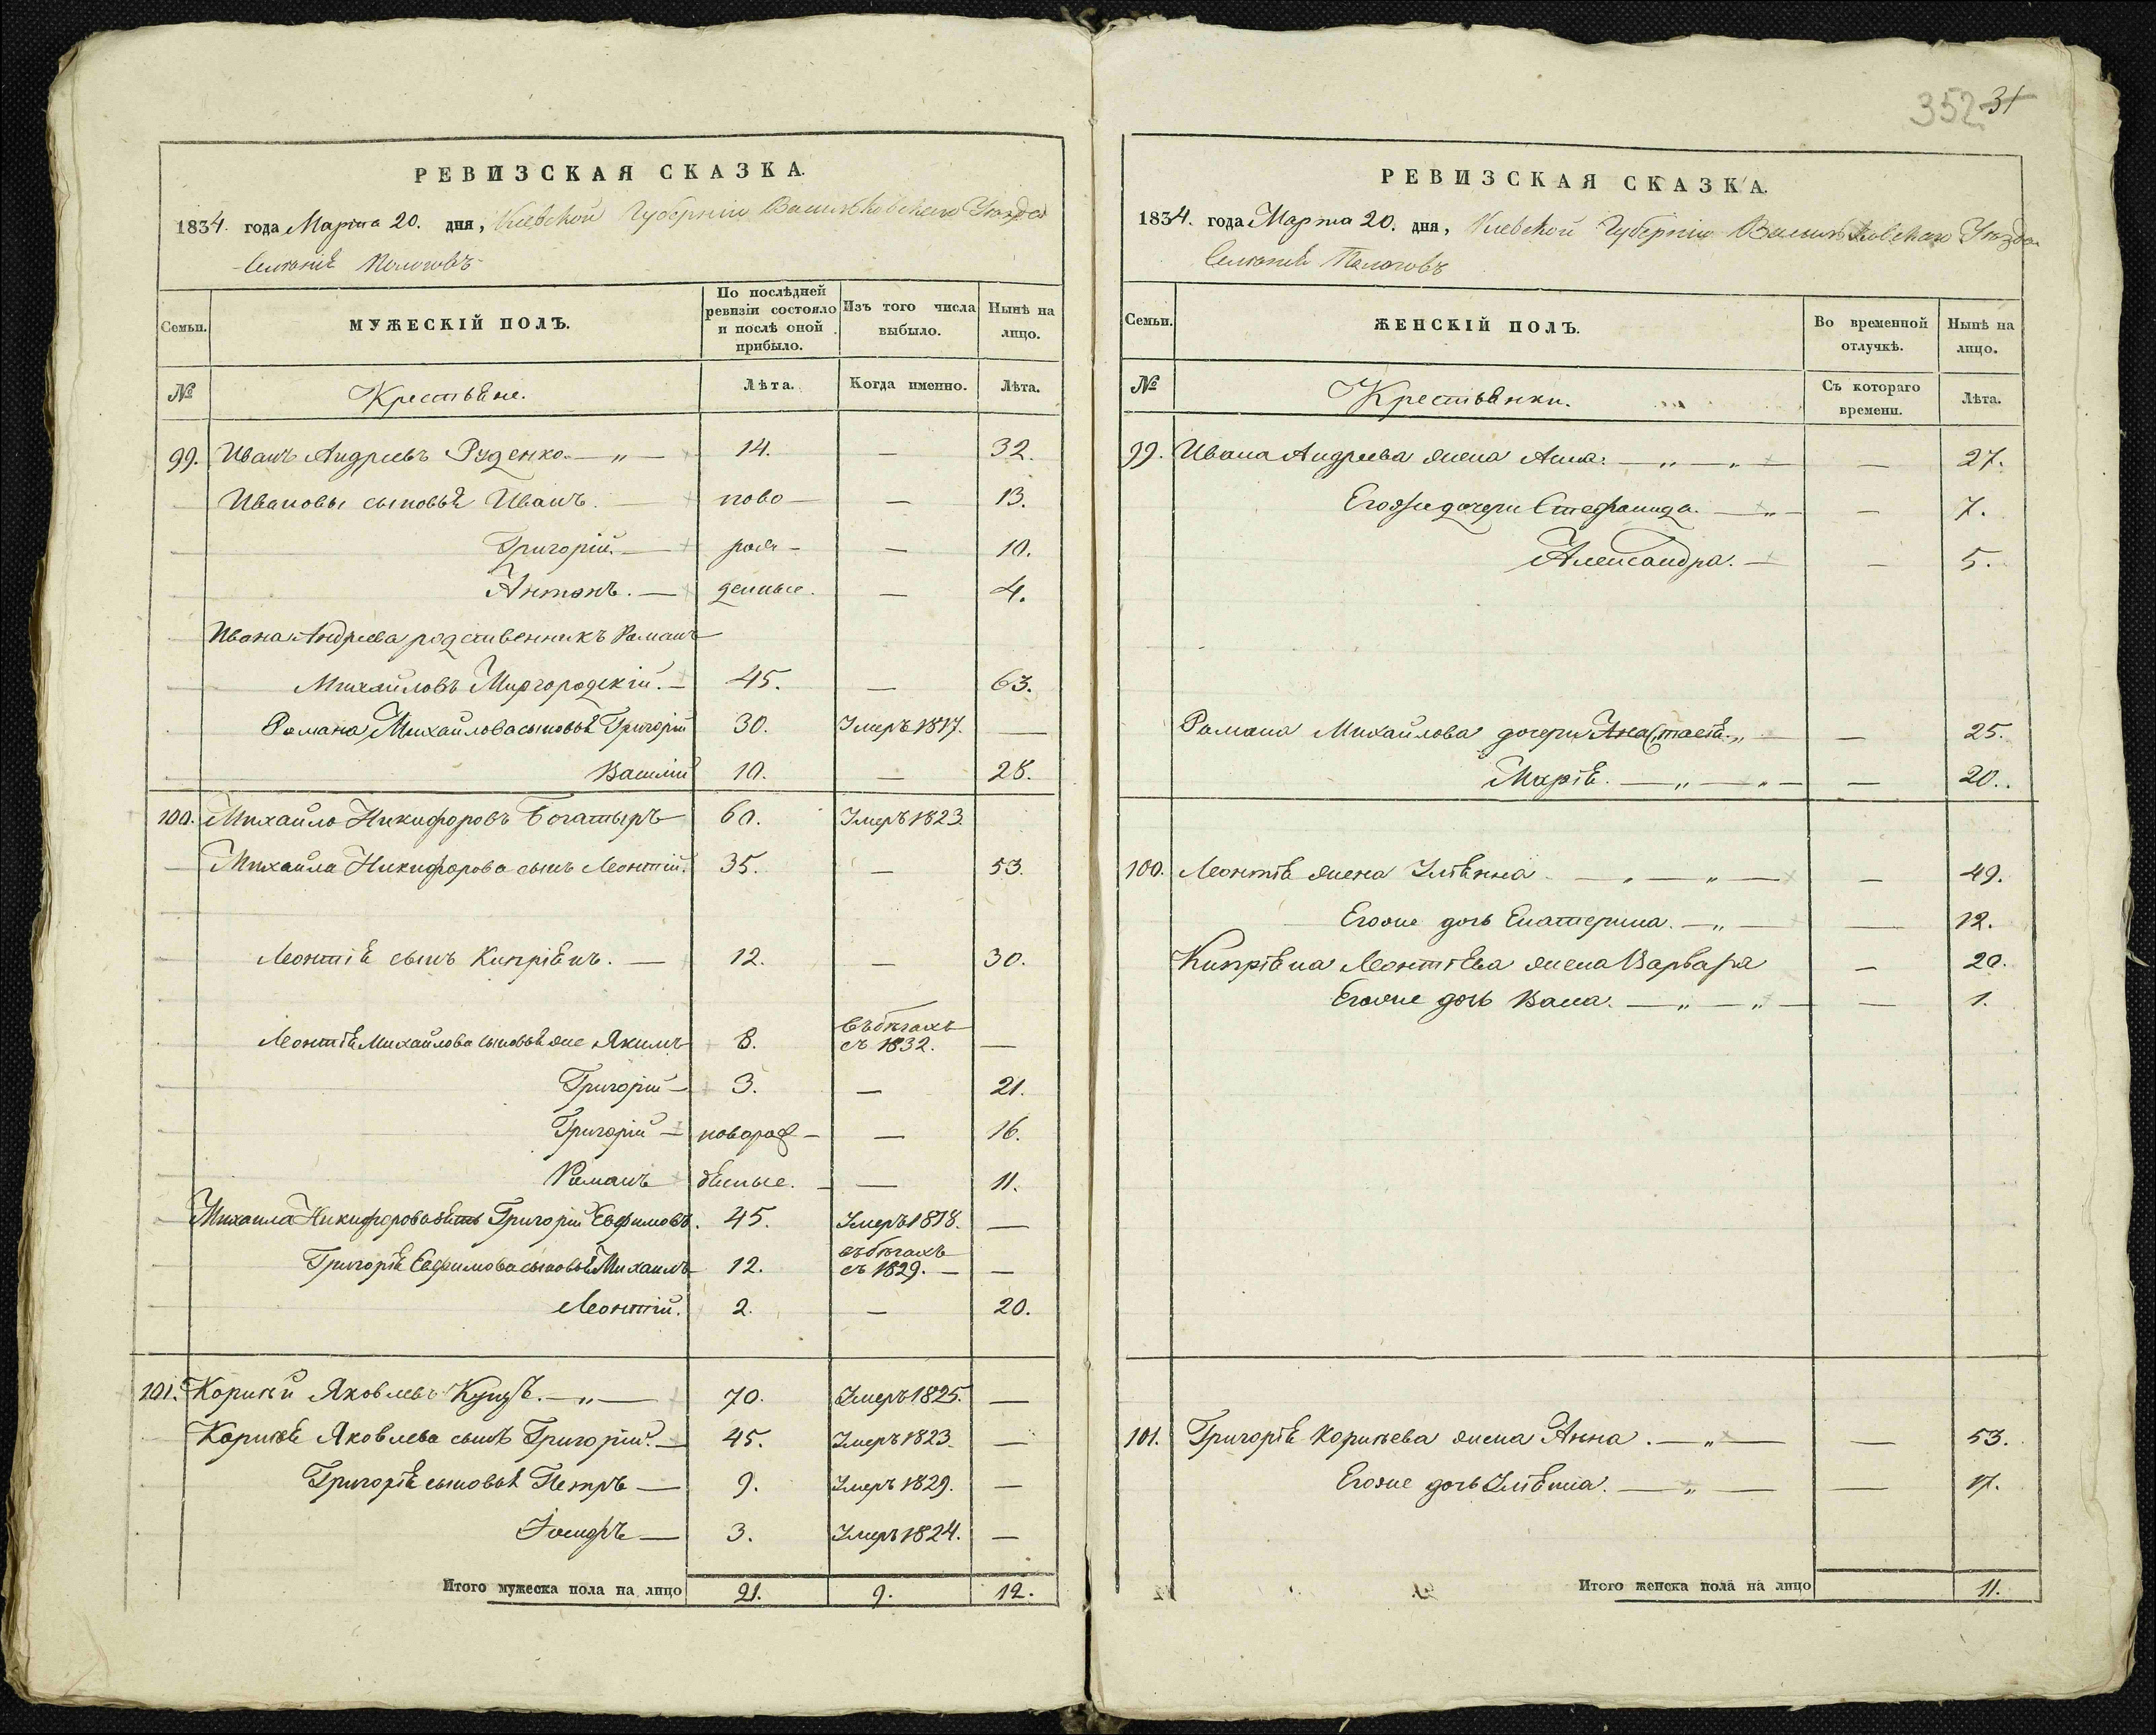 РЕВИЗСКАЯ СКАЗКА.
1834. года Марта 20. дня, Кіевской Губерніи Васильковскаго Уѣзда
Селенія Пологовъ
Семьи.
МУЖЕСКІЙ ПОЛЪ.
По послѣдней ревизіи состояло и послѣ оной прибыло.
Изъ того числа выбыло.
Нынѣ на лицо.
№ Крестьяне. Лѣта. Когда именно. Лѣта.
99. Иванъ Андреевъ Руденко. — „ — 14. — 32.
Ивановы сыновья Иванъ. — ново — — 13.
Григорій. — рож- — 10.
Антонъ. — денные. — 4.
Ивана Андреева родственникъ Романъ
Михайловъ Миргородскій. — 45. — 63.
Романа Михайлова сыновья Григорій 30. Умеръ 1817. —
Василій 10. — 28.
100. Михайло Никифоровъ Богатыръ 60. Умеръ 1823.
Михайла Никифорова сынъ Леонтій. 35. — 53.
Леонтія сынъ Кипріянъ. — 12. — 30.
Леонтія Михайлова сыновья же Якимъ 8. въ бѣгахъ съ 1832. —
Григорій — 3. — 21.
Григорій — новорож — — 16.
Романъ дѣнные. — — 11.
Михаила Никифорова Григорій Евфимовъ. 45. Умеръ 1818. —
Григорія Евфимова сыновья Михаилъ 12. въ бѣгахъ съ 1829. — —
Леонтій. 2. — 20.
101. Корнѣй Яковлевъ — „ — 70. Умеръ 1825. —
Корнѣя Яковлева сынъ Григорій. — 45. Умеръ 1823. —
Григорія сыновья Петръ — 9. Умеръ 1829. —
Іосифъ — 3. Умеръ 1824. —
Итого мужеска пола на лицо 21. 9. 12.
352 31
РЕВИЗСКАЯ СКАЗКА.
1834. года Марта 20. дня, Кіевской Губерніи Васильковскаго Уѣзда
Селенія Пологовъ
Семьи.
ЖЕНСКІЙ ПОЛЪ.
Во временной отлучкѣ.
Нынѣ на лицо.
№ Крестьянки. Съ котораго времени. Лѣта.
99. Ивана Андреева жена Анна. — „ — „ — — 27.
Его же дочери Стефанида. — „ — — 7.
Александра. — — 5.
Романа Михайлова дочери Анастасія. „ — — 25.
Марія. — „ — „ — — 20.
100. Леонтія жена Уліянна — „ — „ — — 49.
Егоже дочь Екатерина. — „ — — 12.
Кипріяна Леонтіева жена Варвара — 20.
Егоже дочь Васса. — „ — „ — — 1.
101. Григорія Корнѣева жена Анна. — „ — — 53.
Егоже дочь Уліяна. — „ — — 17.
Итого женска пола на лицо 11.